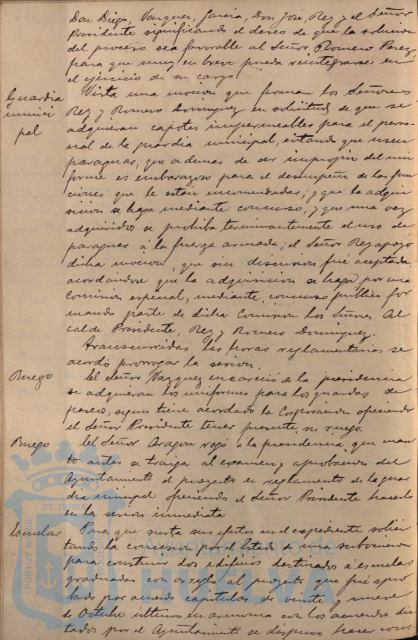 Don Diego, Vazquez, Garcia, Don José Rey y el Señor
Presidente significando el deseo de que la solucion
del proceso sea favorable al Señor Romero Perez
para que muy en breve pueda reintegrarse en
el ejercicio de su cargo.
Guardia municipal
Vista una mocion que firman los Señores
Rey y Romero Dominguez en solicitud de que se
adquieran capotes impermeables para el perso-
nal de la guardia municipal, evitando que usen
paraguas, que ademas de ser impropio del uni
forme es embarazoso para el desempeño de las fun
ciones que le estan encomendadas; y que la adqui
sicion se haga mediante concurso, y que una vez
adquiridos se prohiba terminantemente el uso de
paraguas á la fuerza armada; el Señor Rey apoyó
dicha mocion, que sin discusion fué aceptada
acordándose que la adquisicion se haga por una
Comision especial, mediante concurso público for
mando parte de dicha Comision los Señores Al
calde Presidente, Rey y Romero Dominguez.
Transcurridas las horas reglamentarias se
acordó prorrogar la sesion.
Ruego
El Señor Vazquez encareció de la presidencia
se adquieran los uniformes para los guardas de
paseo, segun tiene acordado la Corporacion ofreciendo
el Señor Presidente tener presente su ruego.
Ruego
El Señor Aragon rogó á la presidencia que cuan
to antes se traiga al examen y aprobacion del
Ayuntamiento el proyecto de reglamento de la guar
dia municipal ofreciendo el Señor Presidente hacerlo
en la sesion inmediata
Escuelas
Para que surta sus efectos en el expediente solici
tando la concesion por el Estado de una subvencion
para construir dos edificios destinados á escuelas
graduadas con arreglo al proyecto que fué apro
bado por acuerdo capitular de veinte y nueve
de Octubre último en armonia con los acuerdos dic
tados por el Ayuntamiento se dispuso hacer cons